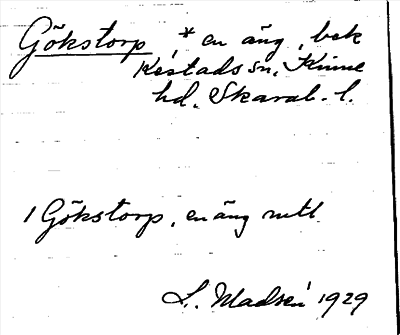 Gökstorp, * en äng, bek
Kestads sn, Kinne
hd. Skarab. l.
1 Gökstorp, en äng mtl.
L. Madsén 1929